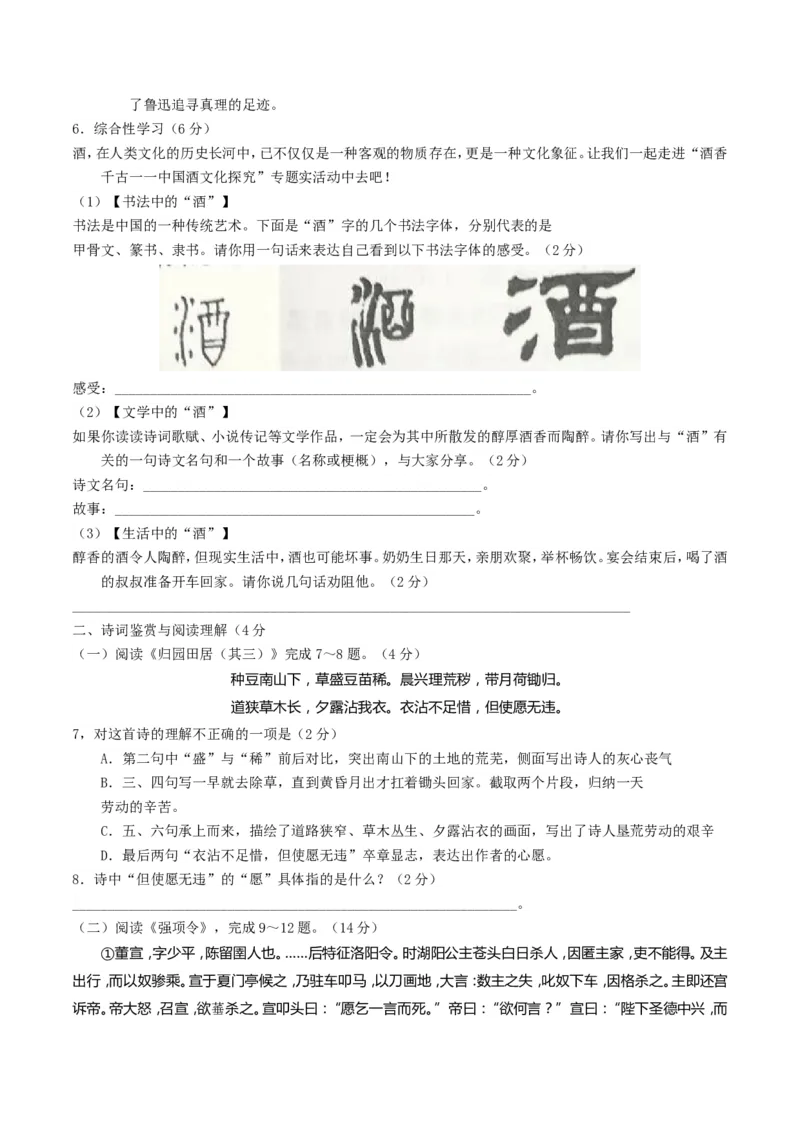 了鲁迅追寻真理的足迹。
6．综合性学习(6 分)
酒，在人类文化的历史长河中，已不仅仅是一种客观的物质存在，更是一种文化象征。让我们一起走进“酒香
千古一一中国酒文化探究”专题实活动中去吧！
（1）【书法中的“酒”】
书法是中国的一种传统艺术。下面是“酒”字的几个书法字体，分别代表的是
甲骨文、篆书、隶书。请你用一句话来表达自己看到以下书法字体的感受。（2 分）
酒 酒 酒
感受：____________________________________________________。
（2）【文学中的“酒”】
如果你读读诗词歌赋、小说传记等文学作品，一定会为其中所散发的醇厚酒香而陶醉。请你写出与“酒”有
关的一句诗文名句和一个故事（名称或梗概），与大家分享。（2 分）
诗文名句：__________________________________________。
故事：_____________________________________________。
（3）【生活中的“酒”】
醇香的酒令人陶醉，但现实生活中，酒也可能坏事。奶奶生日那天，亲朋欢聚，举杯畅饮。宴会结束后，喝了酒
的叔叔准备开车回家。请你说几句话劝阻他。（2 分）
______________________________________________________________________
二、诗词鉴赏与阅读理解（4 分
（一）阅读《归园田居（其三）》完成 7～8 题。（4 分）
种豆南山下，草盛豆苗稀。晨兴理荒秽，带月荷锄归。
道狭草木长，夕露沾我衣。衣沾不足惜，但使愿无违。
7，对这首诗的理解不正确的一项是(2 分)
A．第二句中“盛”与“稀”前后对比，突出南山下的土地的荒芜，侧面写出诗人的灰心丧气
B．三、四句写一早就去除草，直到黄昏月出才扛着锄头回家。截取两个片段，归纳一天
劳动的辛苦。
C．五、六句承上而来，描绘了道路狭窄、草木丛生、夕露沾衣的画面，写出了诗人垦荒劳动的艰辛
D．最后两句“衣沾不足惜，但使愿无违”卒章显志，表达出作者的心愿。
8．诗中“但使愿无违”的“愿”具体指的是什么？(2 分)
________________________________________________________。
（二）阅读《强项令》，完成 9～12 题。（14 分）
①董宣，字少平，陈留圉人也。……后特征洛阳令。时湖阳公主苍头白日杀人，因匿主家，吏不能得。及主
出行，而以奴骖乘。宣于夏门亭候之，乃驻车叩马，以刀画地，大言：数主之失，叱奴下车，因格杀之。主即还宫
诉帝。帝大怒，召宣，欲箠杀之。宣叩头曰：“愿乞一言而死。”帝曰：“欲何言？”宣曰：“陛下圣德中兴，而